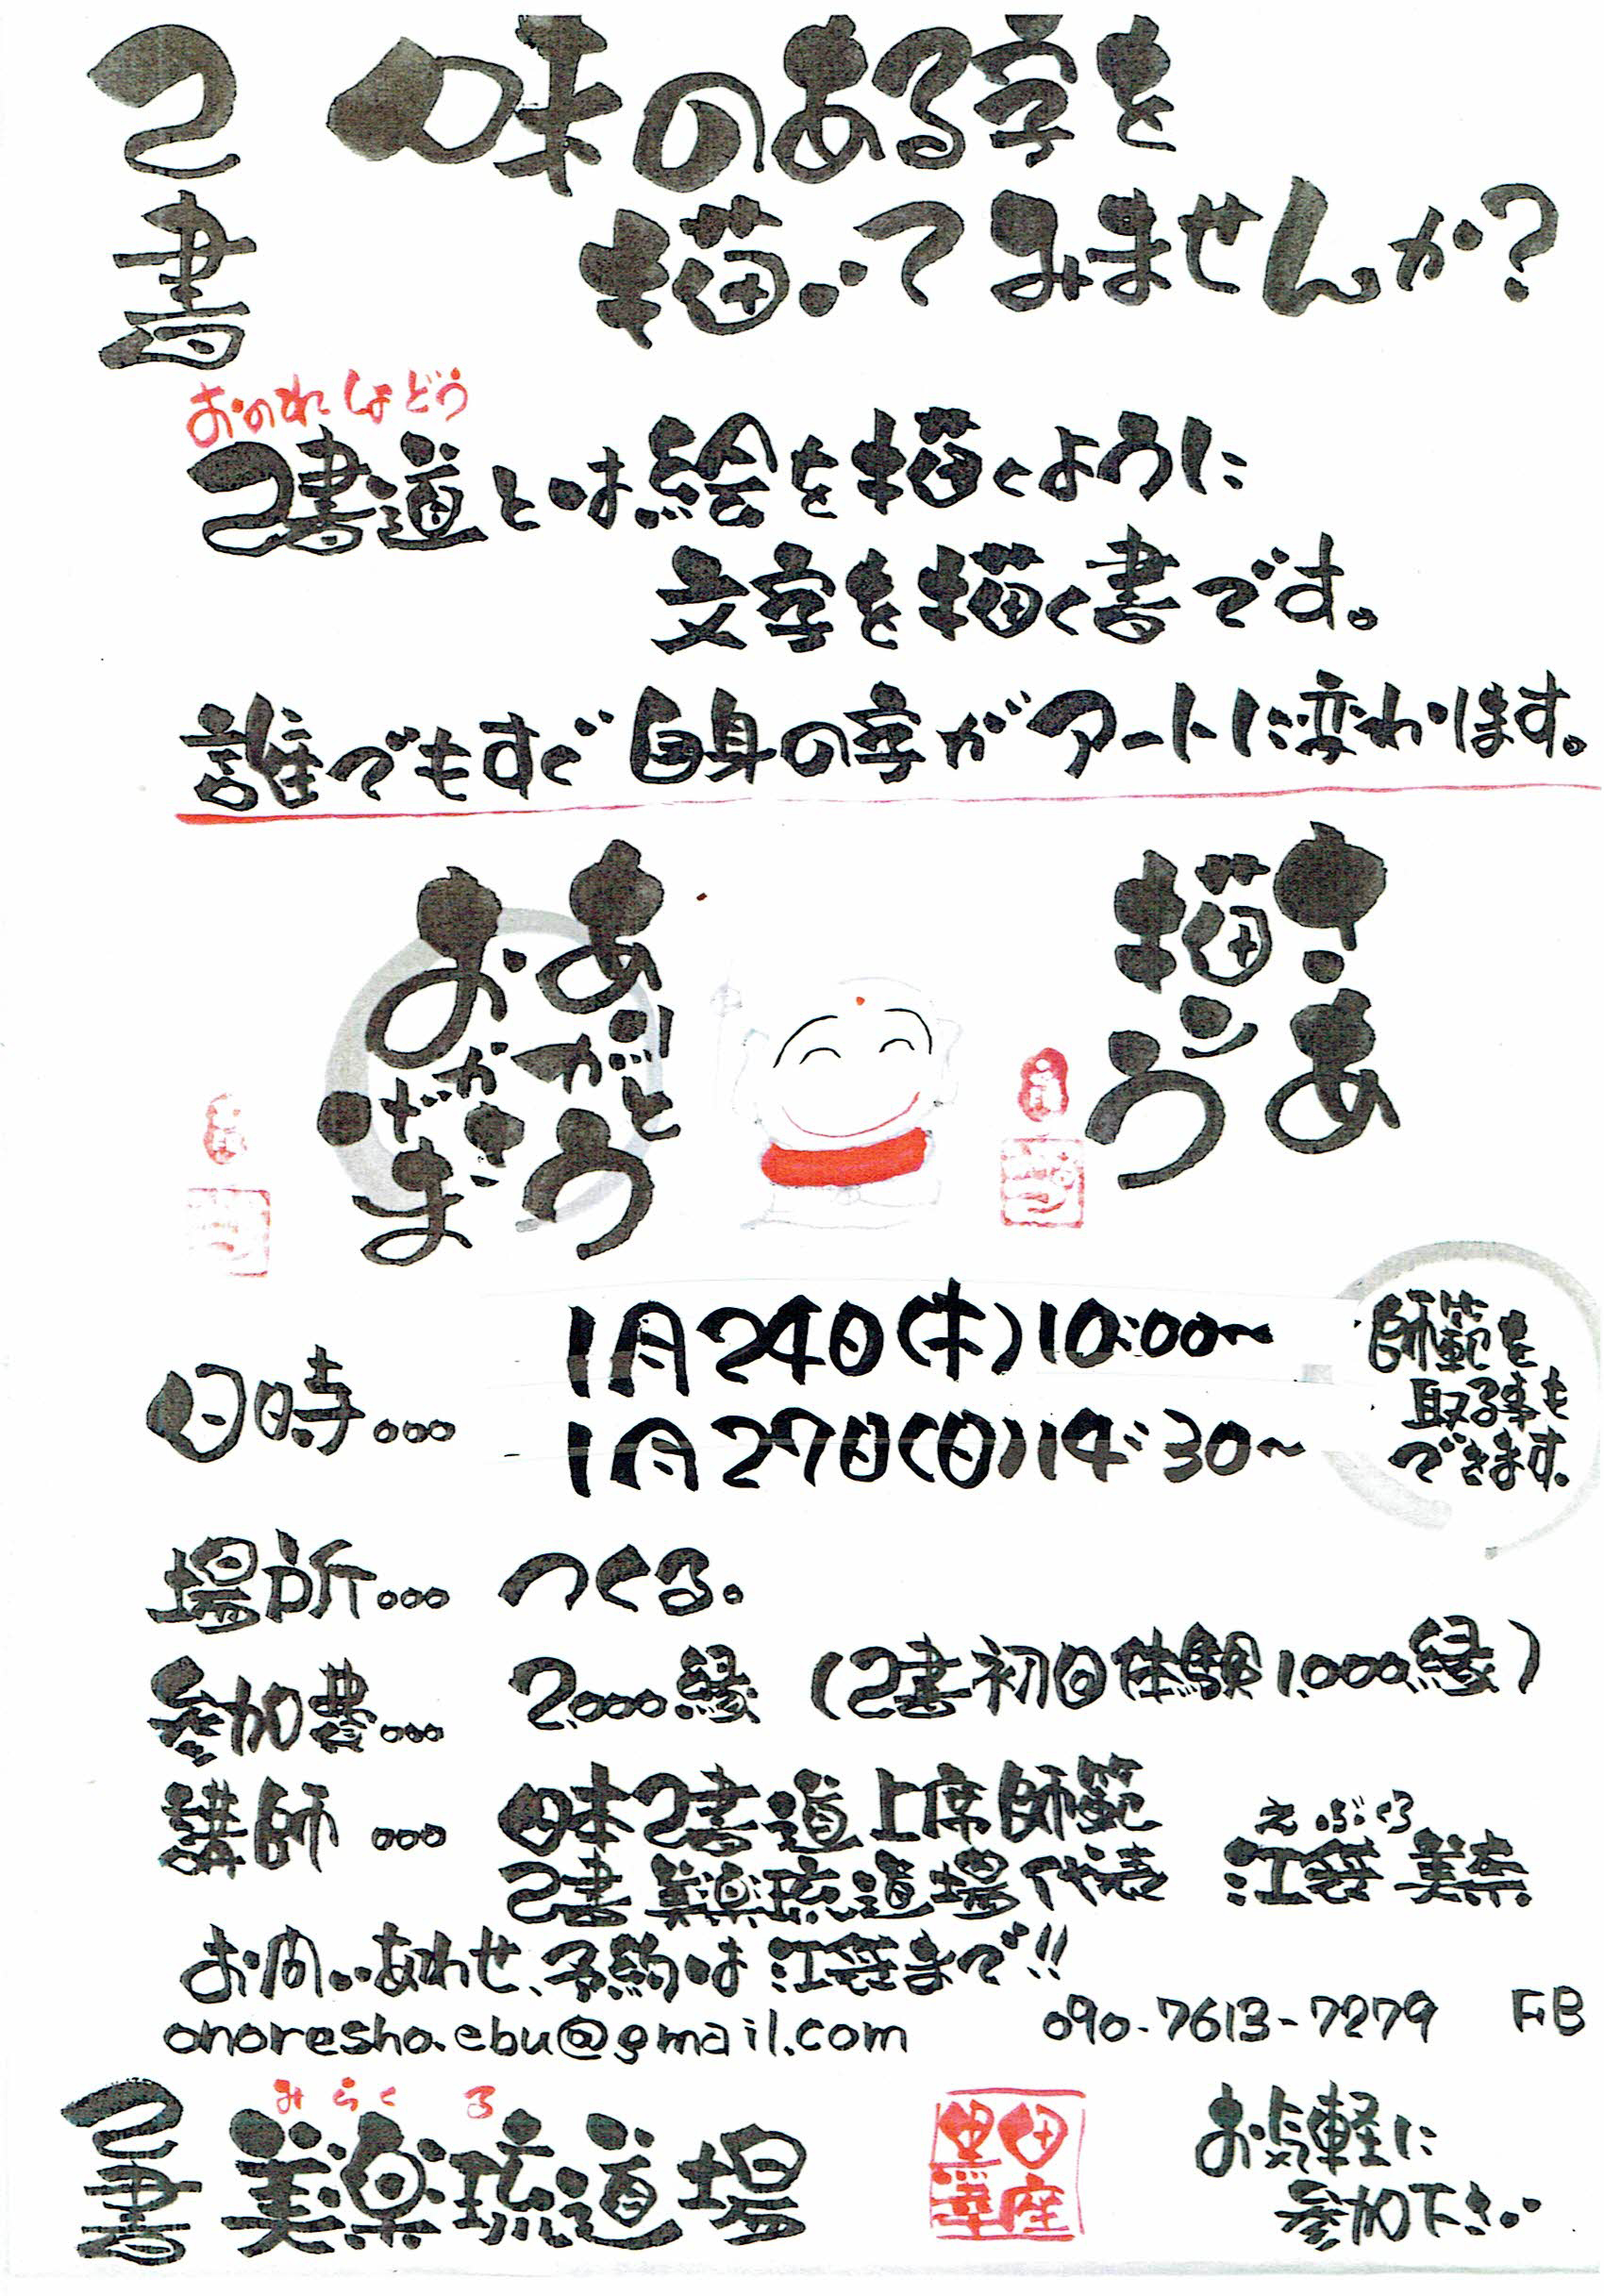 己書
味のある字を
描いてみませんか?
おのれしょどう
己書道とは絵を描くように
文字を描く書です。
誰でもすぐ自身の字がアートに変わります。
さぁ
描こう
ありがとう
おかげさま
日時… 1月24日(木)10:00~
1月27日(日)14:30~
師範を
取る事も
できます。
場所… つくる。
参加費… 2,000縁(己書初回体験1,000縁)
講師… 日本己書道上席師範
己書美楽琉道場代表 江袋美奈
えぶくろ
お問いあわせ、予約は江袋まで!!
onoresho.ebu@gmail.com 090-7613-7279 FB
みらくる
己書 美楽琉道場
お気軽に
参加下さい